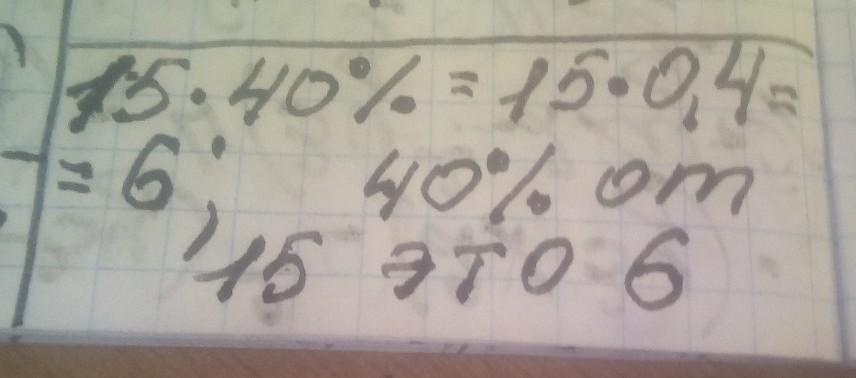 15·40% = 15·0,4=
= 6; 40% от
15 это 6